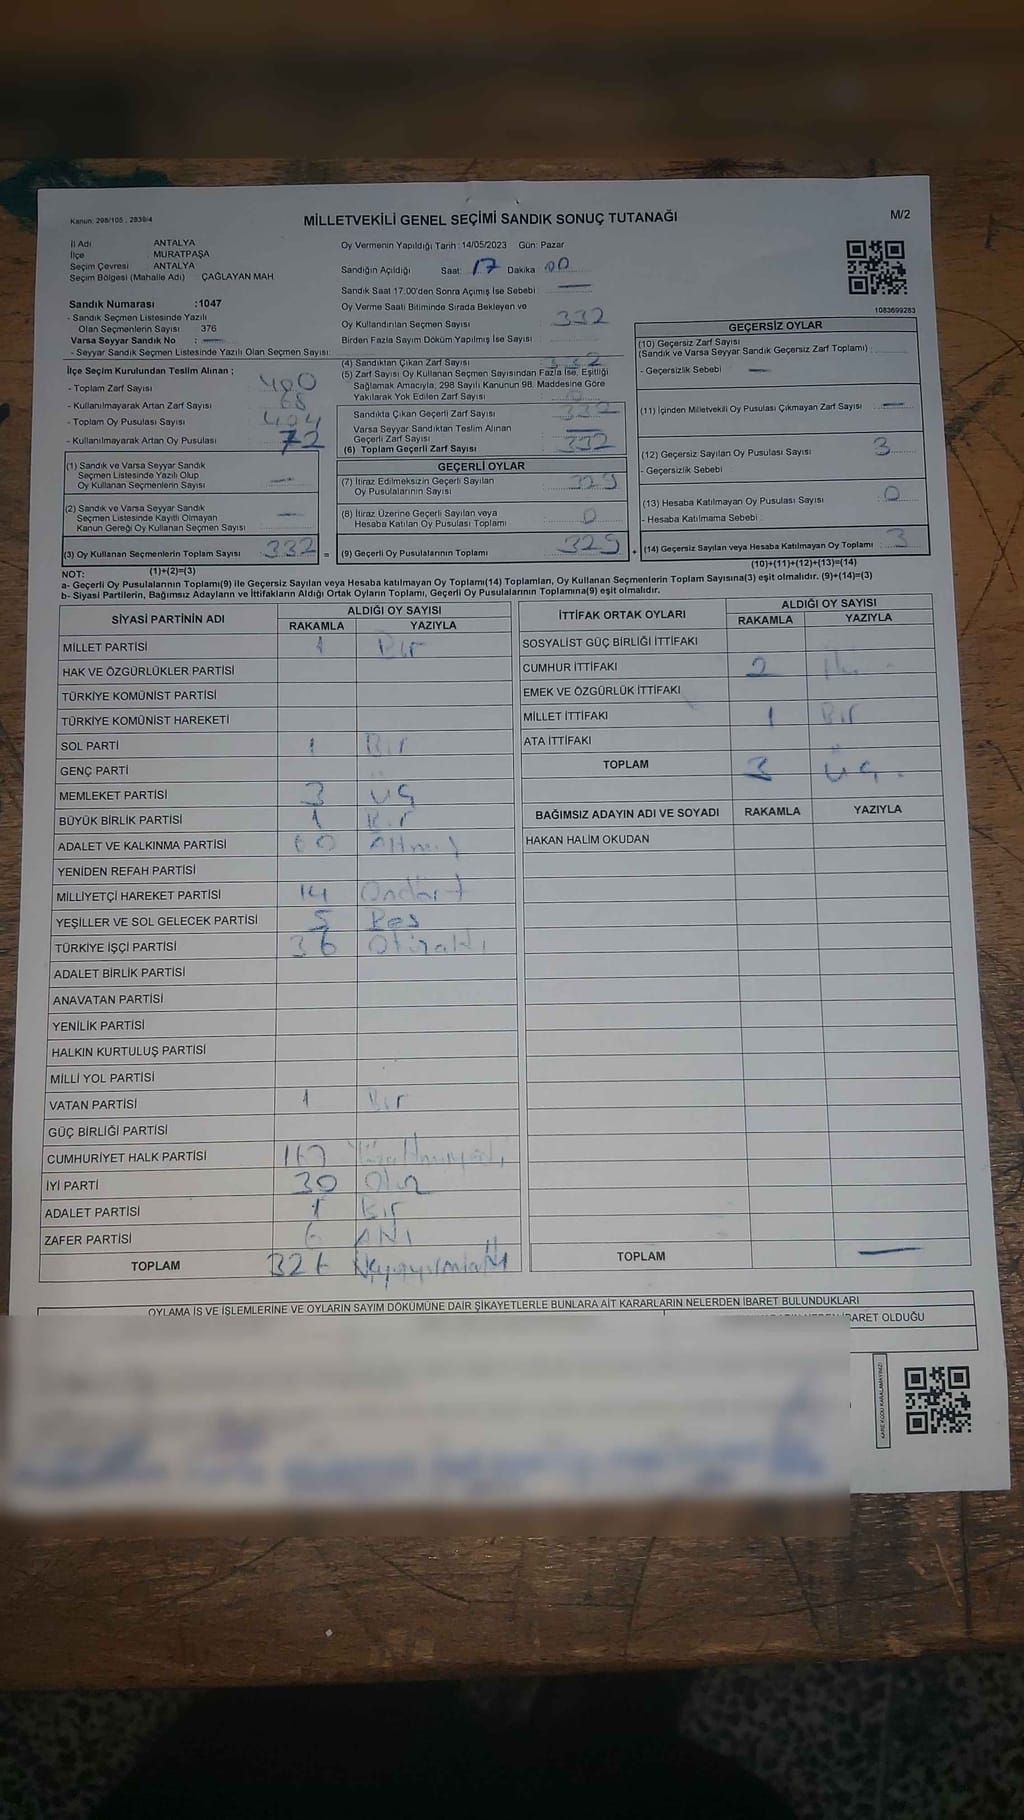 Kanun: 298/105 , 2839/4
MİLLETVEKİLİ GENEL SEÇİMİ SANDIK SONUÇ TUTANAĞI
M/2
İl Adı : ANTALYA
İlçe : MURATPAŞA
Seçim Çevresi : ANTALYA
Seçim Bölgesi (Mahalle Adı) : ÇAĞLAYAN MAH.
Oy Vermenin Yapıldığı Tarih : 14/05/2023 Gün: Pazar
Sandığın Açıldığı Saat: 17 Dakika 00
Sandık Saat 17:00'den Sonra Açımış İse Sebebi : —
Oy Verme Saati Bitiminde Sırada Bekleyen ve
Oy Kullandırılan Seçmen Sayısı 332
Birden Fazla Sayım Döküm Yapılmış İse Sayısı :
1083699283
Sandık Numarası :1047
- Sandık Seçmen Listesinde Yazılı
Olan Seçmenlerin Sayısı 376
Varsa Seyyar Sandık No : —
- Seyyar Sandık Seçmen Listesinde Yazılı Olan Seçmen Sayısı:
İlçe Seçim Kurulundan Teslim Alınan ;
- Toplam Zarf Sayısı : 400
- Kullanılmayarak Artan Zarf Sayısı : 68
- Toplam Oy Pusulası Sayısı : 404
- Kullanılmayarak Artan Oy Pusulası : 72
(1) Sandık ve Varsa Seyyar Sandık
Seçmen Listesinde Yazılı Olup
Oy Kullanan Seçmenlerin Sayısı —
(2) Sandık ve Varsa Seyyar Sandık
Seçmen Listesinde Kayıtlı Olmayan
Kanun Gereği Oy Kullanan Seçmen Sayısı —
(3) Oy Kullanan Seçmenlerin Toplam Sayısı 332 =
(1)+(2)=(3)
(4) Sandıktan Çıkan Zarf Sayısı : 332
(5) Zarf Sayısı Oy Kullanan Seçmen Sayısından Fazla İse, Eşitliği
Sağlamak Amacıyla, 298 Sayılı Kanunun 98. Maddesine Göre
Yakılarak Yok Edilen Zarf Sayısı
Sandıkta Çıkan Geçerli Zarf Sayısı : 332
Varsa Seyyar Sandıktan Teslim Alınan
Geçerli Zarf Sayısı : —
(6) Toplam Geçerli Zarf Sayısı : 332
GEÇERLİ OYLAR
(7) İtiraz Edilmeksizin Geçerli Sayılan
Oy Pusulalarının Sayısı 329
(8) İtiraz Üzerine Geçerli Sayılan veya
Hesaba Katılan Oy Pusulası Toplamı 0
(9) Geçerli Oy Pusulalarının Toplamı 329 +
GEÇERSİZ OYLAR
(10) Geçersiz Zarf Sayısı
(Sandık ve Varsa Seyyar Sandık Geçersiz Zarf Toplamı) :
- Geçersizlik Sebebi : —
(11) İçinden Milletvekili Oy Pusulası Çıkmayan Zarf Sayısı —
(12) Geçersiz Sayılan Oy Pusulası Sayısı : 3
- Geçersizlik Sebebi :
(13) Hesaba Katılmayan Oy Pusulası Sayısı : 0
- Hesaba Katılmama Sebebi :
(14) Geçersiz Sayılan veya Hesaba Katılmayan Oy Toplamı : 3
(10)+(11)+(12)+(13)=(14)
NOT:
a- Geçerli Oy Pusulalarının Toplamı(9) ile Geçersiz Sayılan veya Hesaba katılmayan Oy Toplamı(14) Toplamları, Oy Kullanan Seçmenlerin Toplam Sayısına(3) eşit olmalıdır. (9)+(14)=(3)
b- Siyasi Partilerin, Bağımsız Adayların ve İttifakların Aldığı Ortak Oyların Toplamı, Geçerli Oy Pusulalarının Toplamına(9) eşit olmalıdır.
SİYASİ PARTİNİN ADI ALDIĞI OY SAYISI
RAKAMLA YAZIYLA
MİLLET PARTİSİ 1 Bir
HAK VE ÖZGÜRLÜKLER PARTİSİ
TÜRKİYE KOMÜNİST PARTİSİ
TÜRKİYE KOMÜNİST HAREKETİ
SOL PARTİ 1 Bir
GENÇ PARTİ
MEMLEKET PARTİSİ 3 üç
BÜYÜK BİRLİK PARTİSİ 1 Bir
ADALET VE KALKINMA PARTİSİ 60 Altmış
YENİDEN REFAH PARTİSİ
MİLLİYETÇİ HAREKET PARTİSİ 14 Ondört
YEŞİLLER VE SOL GELECEK PARTİSİ 5 Beş
TÜRKİYE İŞÇİ PARTİSİ 36 Otuzaltı
ADALET BİRLİK PARTİSİ
ANAVATAN PARTİSİ
YENİLİK PARTİSİ
HALKIN KURTULUŞ PARTİSİ
MİLLİ YOL PARTİSİ
VATAN PARTİSİ 1 Bir
GÜÇ BİRLİĞİ PARTİSİ
CUMHURİYET HALK PARTİSİ 167 Yüzaltmışyedi
İYİ PARTİ 30 Otuz
ADALET PARTİSİ 1 Bir
ZAFER PARTİSİ 6 Altı
TOPLAM 326 üçyüzyirmialtı
İTTİFAK ORTAK OYLARI ALDIĞI OY SAYISI
RAKAMLA YAZIYLA
SOSYALİST GÜÇ BİRLİĞİ İTTİFAKI
CUMHUR İTTİFAKI 2 İki
EMEK VE ÖZGÜRLÜK İTTİFAKI
MİLLET İTTİFAKI 1 Bir
ATA İTTİFAKI
TOPLAM 3 üç
BAĞIMSIZ ADAYIN ADI VE SOYADI RAKAMLA YAZIYLA
HAKAN HALİM OKUDAN
TOPLAM —
OYLAMA İŞ VE İŞLEMLERİNE VE OYLARIN SAYIM DÖKÜMÜNE DAİR ŞİKAYETLERLE BUNLARA AİT KARARLARIN NELERDEN İBARET BULUNDUKLARI
İBARET OLDUĞU
KARE KODU KARALAMAYINIZ!